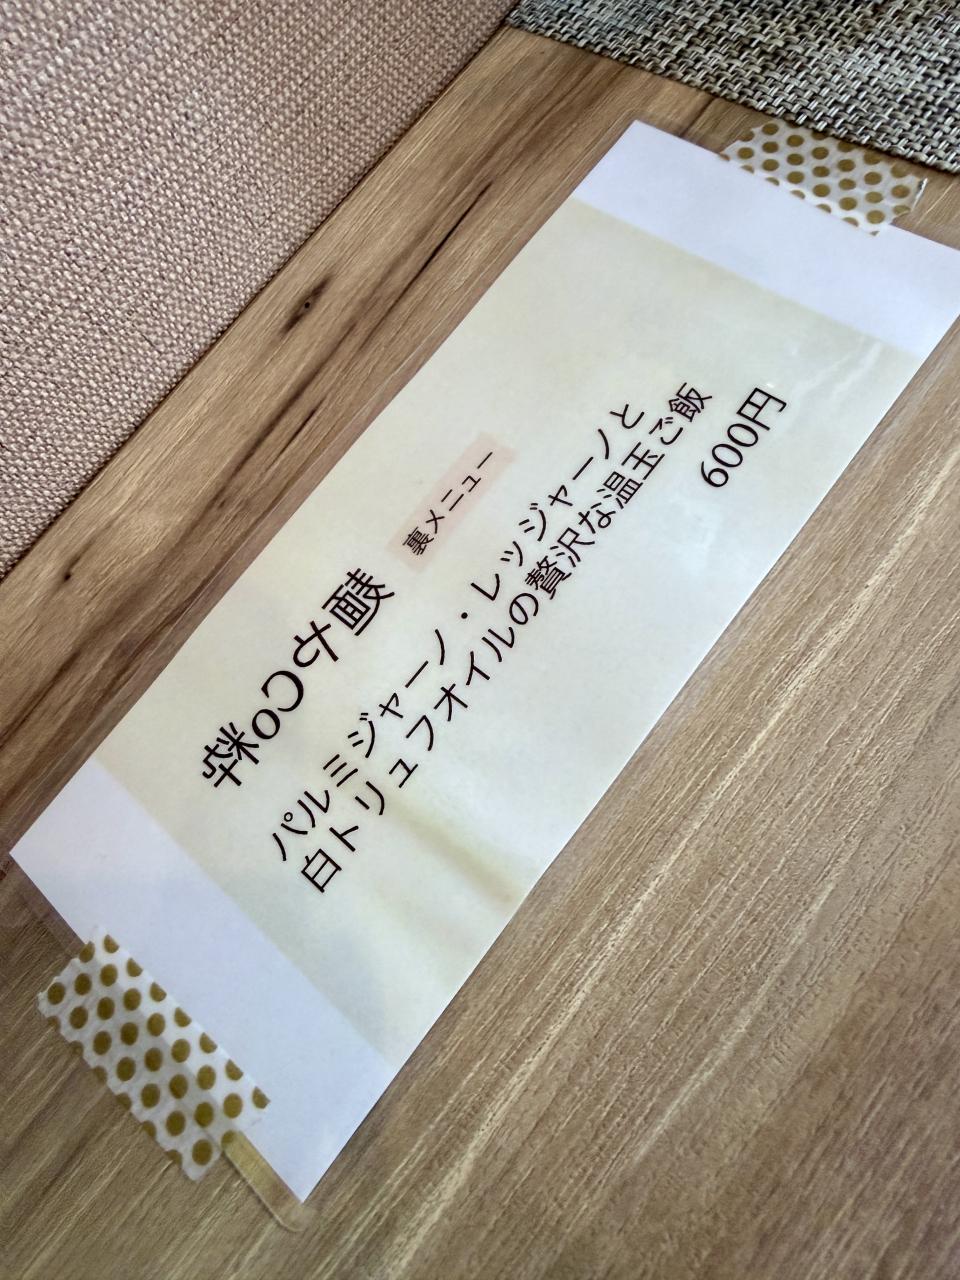 裏メニュー
パルミジャーノ・レッジャーノと
白トリュフオイルの贅沢な温玉ご飯
600円